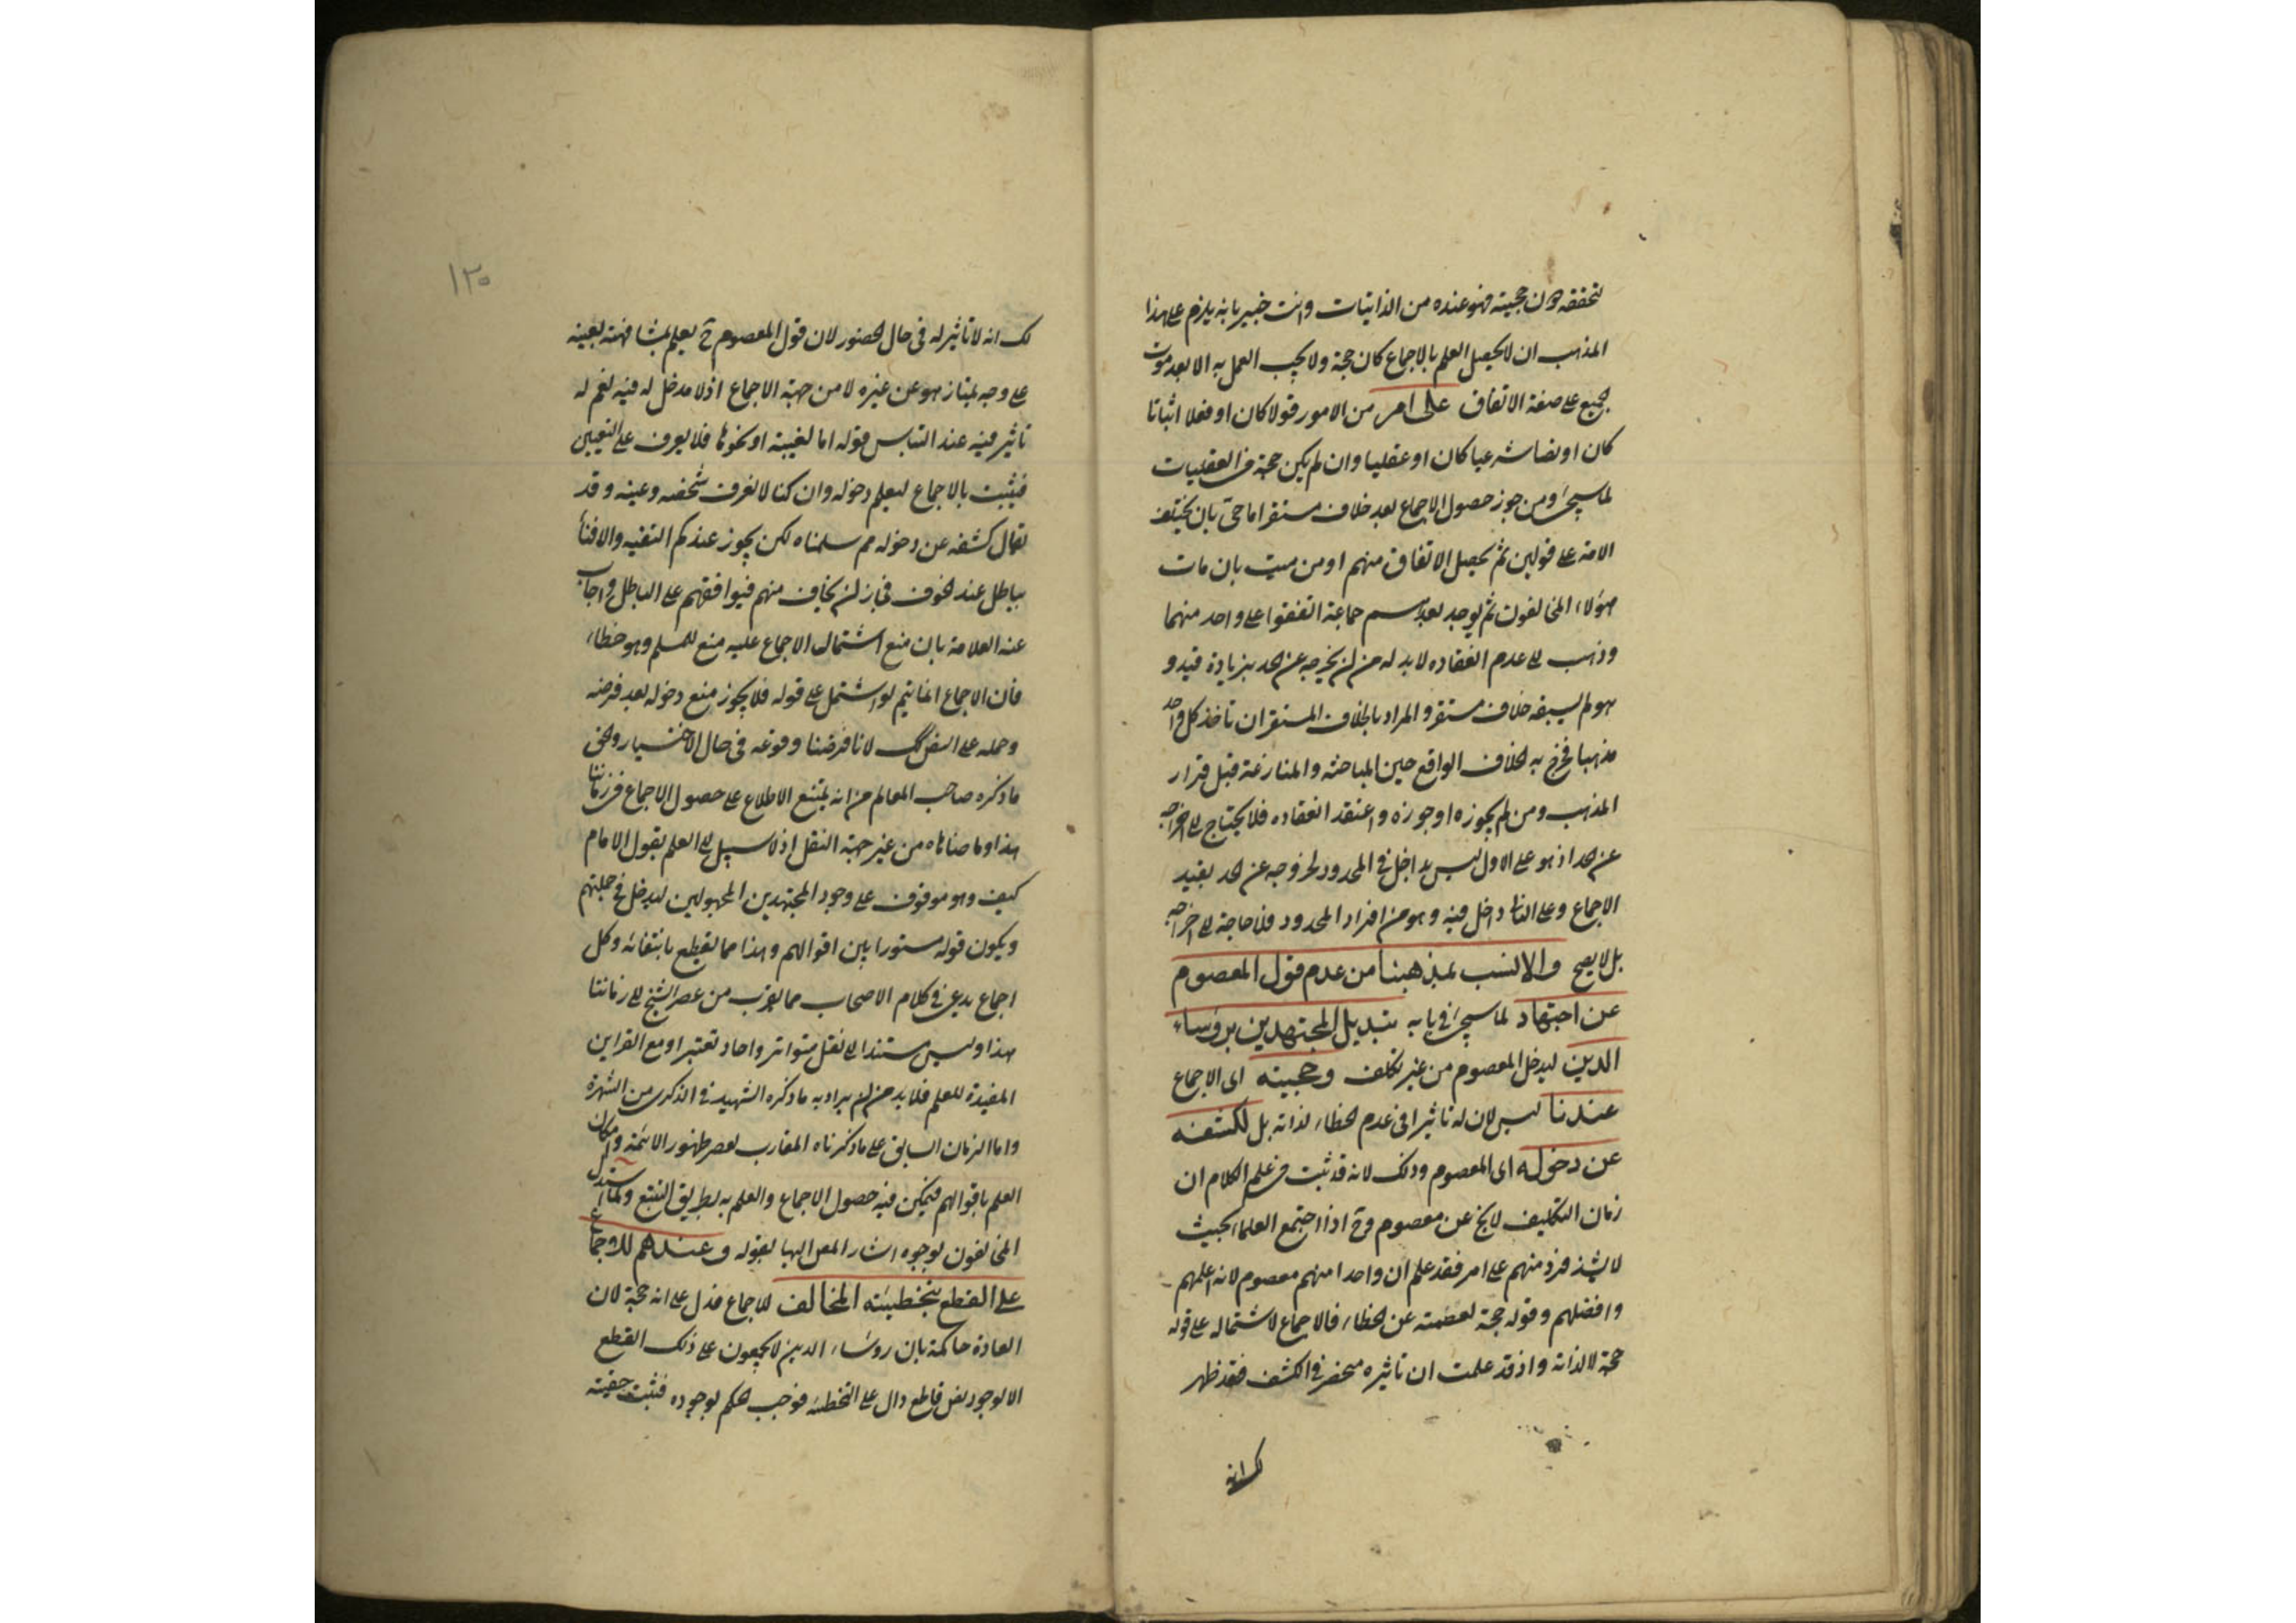 لتحققه دون حجيته فهو عنده من الذاتيات وانت خبير بانه يلزم على هذا
المذهب ان لا يحصل العلم بالاجماع كان حجة ولا يجب العمل به الا بعد موت
الجميع على صفة الاتفاق على امر من الامور قولا كان او فعلا اثباتا
كان او نفيا شرعيا كان او عقليا وان لم يكن حجة في العقليات
لما سيجئ ومن جوز حصول الاجماع بعد خلاف مستقر اما حى بان يختلف
الامة على قولين ثم يحصل الاتفاق منهم او من ميت بان مات
هؤلاء المخالفون ثم يوجد بعدهم جماعة اتفقوا على واحد منهما
وذهب الى عدم انعقاده لا بد له من ان يخرجه عن الحد بزيادة قيد و
هو لم يسبقه خلاف مستقر والمراد بالخلاف المستقر ان تأخذ كل واحد
مذهبا فخرج به الخلاف الواقع حين المباحثه والمنازعة قبل قرار
المذهب ومن لم يجوزه او جوزه واعتقد انعقاده فلا يحتاج الى اخراجه
عن الحد اذ هو على الاول ليس بداخل في المحدود لخروجه عن الحد بقيد
الاجماع وعلى الثانى داخل فيه وهو من افراد المحدود فلا حاجة الى اخراجه
بل لا يصح والانسب بمذهبنا من عدم قول المعصوم
عن اجتهاد لما سيجئ في بابه تبديل المجتهدين برؤساء
الدين ليدخل المعصوم من غير تكلف وحجيته اى الاجماع
عندنا ليس لان له تاثيرا في عدم الخطاء لذاته بل لكشفه
عن دخوله اى المعصوم وذلك لانه قد ثبت في علم الكلام ان
زمان التكليف لا يخ عن معصوم وح اذا اجتمع العلماء بحيث
لا يشذ فرد منهم على امر فقد علم ان واحدا منهم معصوم لانه اعلمهم
وافضلهم وقوله حجة لعصمته عن الخطاء فالاجماع لاشتماله على قوله
حجة لا لذاته واذ قد علمت ان تاثيره منحصر في الكشف فقد ظهر
لك انه
١٢٥
لك انه لا تاثير له في حال الحضور لان قول المعصوم ح يعلم بمشافهته بعينه
على وجه يمتاز هو عن غيره لا من جهة الاجماع اذ لا مدخل له فيه نعم له
تاثير فيه عند التباس قوله اما لغيبته او نحوها فلا يعرف على التعيين
فيثبت بالاجماع ليعلم دخوله وان كنا لا نعرف شخصه وعينه وقد
يقال كشفه عن دخوله مم سلمناه لكن يجوز عندكم التقيه والافتاء
بباطل عند الخوف فجاز ان يخاف منهم فيوافقهم على الباطل واجاب
عنه العلامة بان منع اشتمال الاجماع عليه منع للمسلم وهو خطاء
فان الاجماع انما يتم لو اشتمل على قوله فلا يجوز منع دخوله بعد فرضه
وحمله على لانا فرضنا وقوعه في حال الاختيار والحق
ما ذكره صاحب المعالم من انه يمتنع الاطلاع على حصول الاجماع في زماننا
هذا وما ضاهاه من غير جهة النقل اذ لا سبيل الى العلم بقول الامام
كيف وهو موقوف على وجود المجتهدين المجهولين ليدخل في جملتهم
ويكون قوله مستورا بين اقوالهم وهذا مما يقطع بانتفائه وكل
اجماع يدعى في كلام الاصحاب مما يقرب من عصر الشيخ الى زماننا
هذا وليس مستندا الى نقل متواتر واحاد تعتبر او مع القراين
المفيدة للعلم فلا بد من ان يراد به ما ذكره الشهيد في الذكرى من الشهرة
واما الزمان السابق على ما ذكرناه المقارب لعصر ظهور الائمة وامكان
العلم باقوالهم فيمكن فيه حصول الاجماع والعلم به بطريق التتبع ولما استدل
المخالفون بوجوه اشار المص اليها بقوله وعندهم للاجماع
على القطع بتخطيئته المخالف للاجماع فدل على انه حجة لان
العادة حاكمة بان روساء الدين لا يجمعون على ذلك القطع
الا لوجود نص قاطع دال على التخطئه فوجب الحكم بوجوده فثبت حقيته